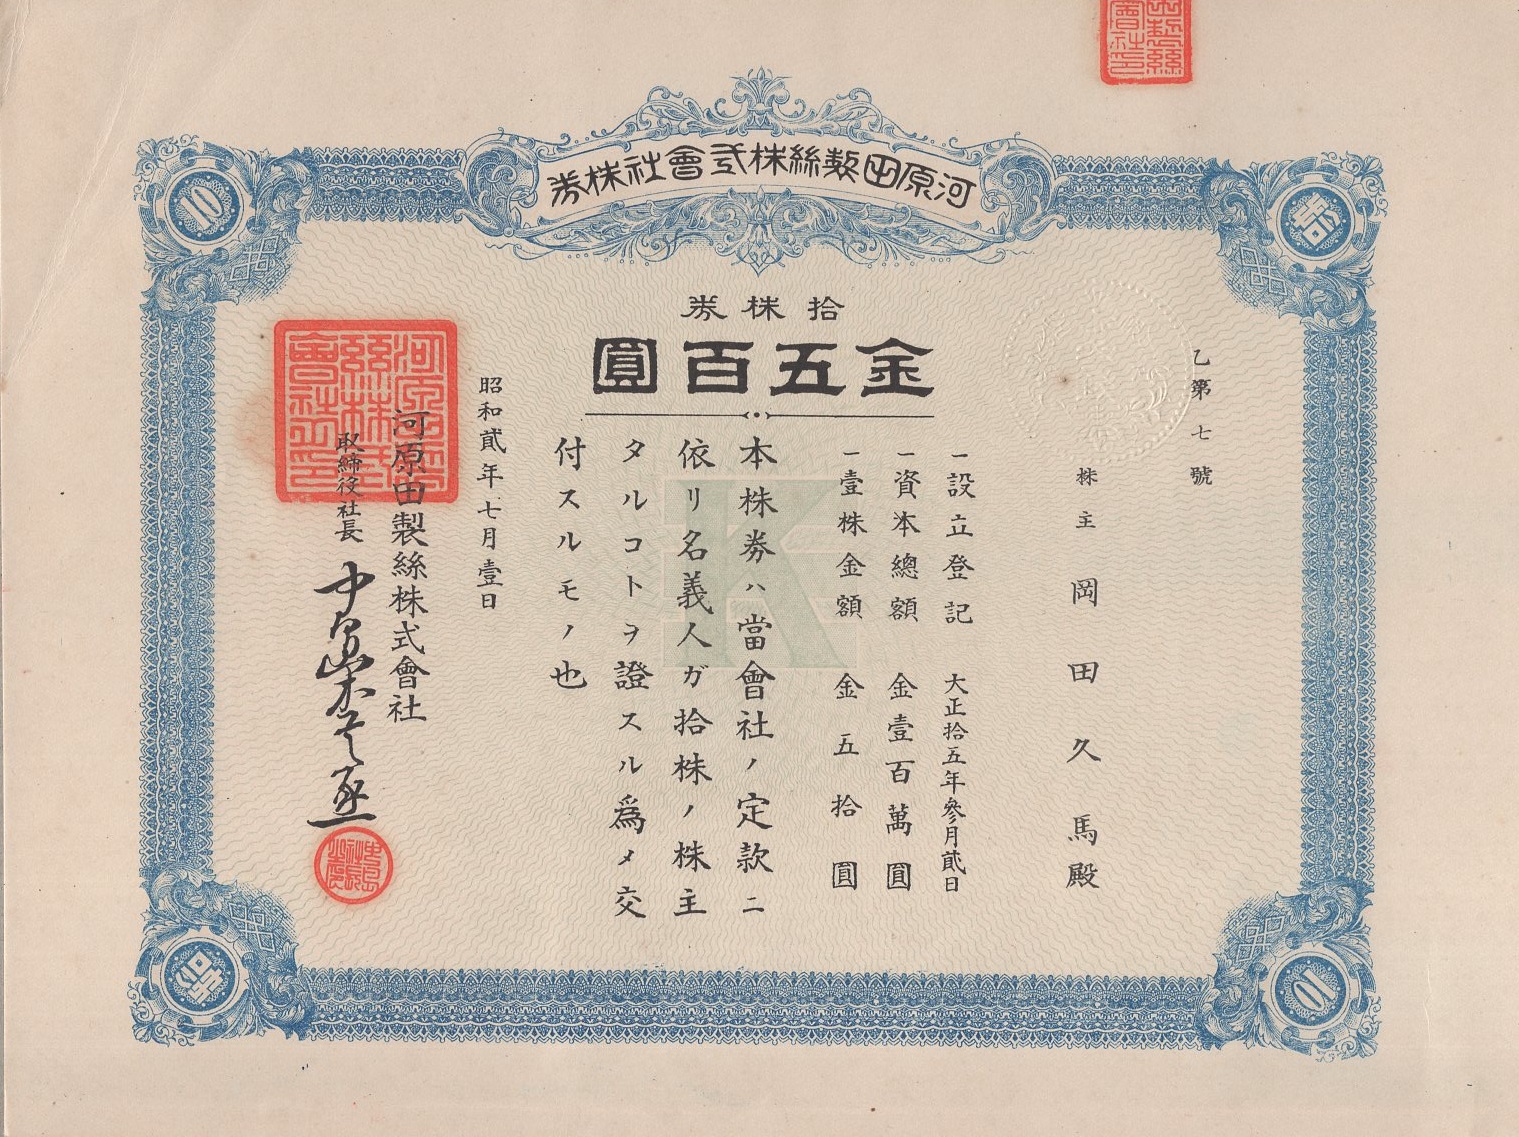 河原田製絲株式會社株券
拾株券
金五百圓
乙第七號
株主 岡田久馬殿
一設立登記 大正拾五年參月貳日
一資本總額 金壹百萬圓
一壹株金額 金五拾圓
本株券ハ當會社ノ定款ニ
依リ名義人ガ拾株ノ株主
タルコトヲ證スル爲メ交
付スルモノ也
昭和貳年七月壹日
河原田製絲株式會社
取締役社長
10
拾
拾
10
K